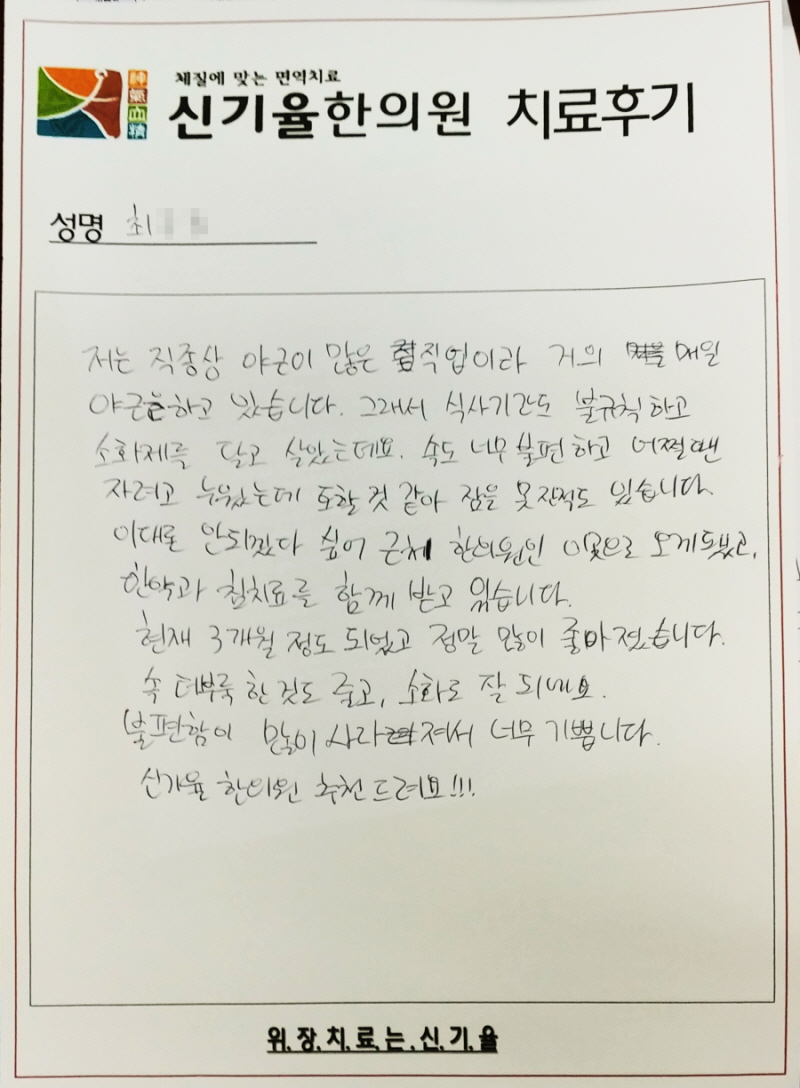 체질에 맞는 면역치료
神氣血精
신기율한의원 치료후기
성명 최
저는 직종상 야근이 많은 직업이라 거의 매일
야근을하고 있습니다. 그래서 식사기간도 불규칙하고
소화제를 달고 살았는데요. 속도 너무 불편하고 어쩔땐
자려고 누웠는데 토할 것 같아 잠을 못 잔적도 있습니다.
이대로 안되겠다 싶어 근처 한의원인 이곳으로 오게되었고,
한약과 침치료를 함께 받고 있습니다.
현재 3개월 정도 되었고 정말 많이 좋아졌습니다.
속 더부룩 한 것도 줄고, 소화도 잘 되네요.
불편함이 많이 사라져서 너무 기쁩니다.
신기율 한의원 추천드려요!!!
위.장.치.료.는.신.기.율